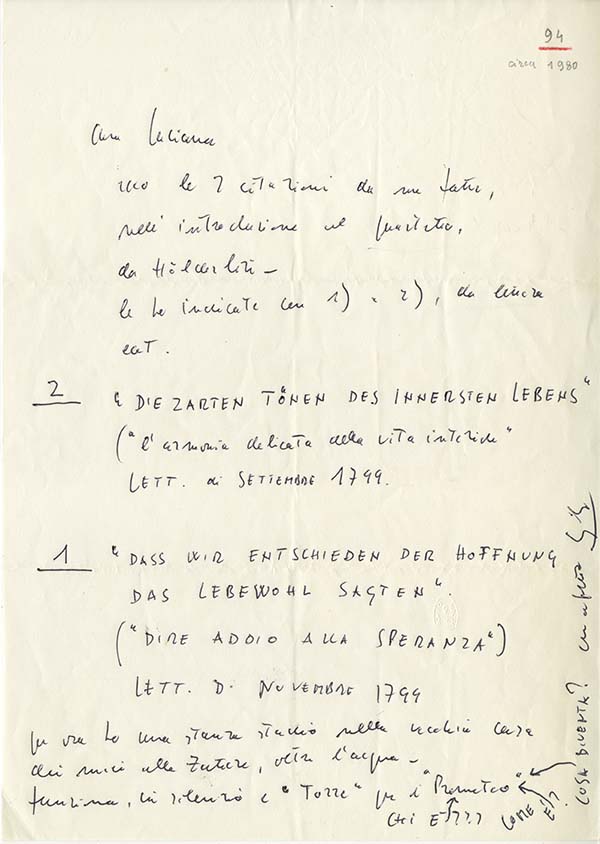 94
circa 1980
Cara Luciana
ecco le 2 citazioni da
nell' introduzione al quartetto,
da Hölderlin –
le ho indicate con 1) e 2), da
2 "DIE ZARTEN TÖNEN DES INNERSTEN LEBENS"
("l'armonia delicata della vita interiore"
LETT. di SETTEMBRE 1799.
1 "DASS WIR ENTSCHIEDEN DER HOFFNUNG
DAS LEBEWOHL SAGTEN".
("DIRE ADDIO ALLA SPERANZA")
LETT. DI NOVEMBRE 1799
per ora ho una stanza studio nella vecchia casa
dei miei alle Zattere, oltre l'acqua –
funziona, in silenzio e "Torre" per il "Prometeo"
CHI È???
COME È??
COSA DIVENTA? con affetto